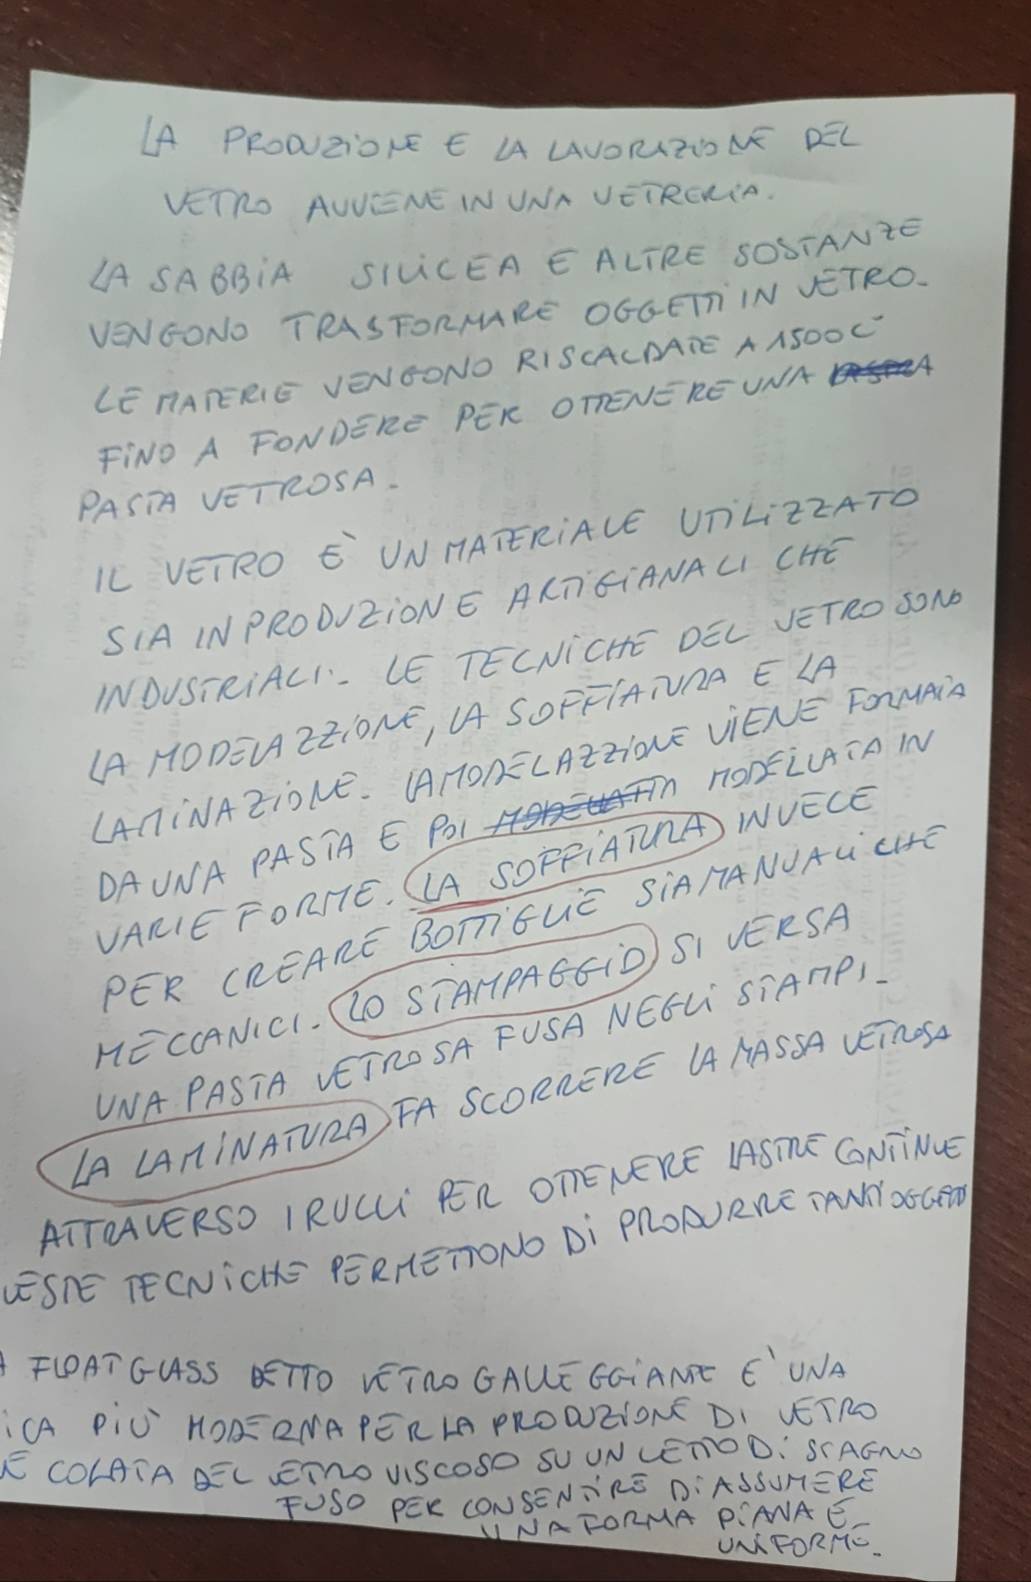 LA PRODUZIONE E LA LAVORAZIONE DEL
VETRO AVVIENE IN UNA VETRERIA.
LA SABBIA SILICEA E ALTRE SOSTANZE
VENGONO TRASFORMARE OGGETTI IN VETRO.
LE MATERIE VENGONO RISCALDATE A 1500C°
FINO A FONDERE PER OTTENERE UNA
PASTA VETROSA.
IL VETRO È UN MATERIALE UTILIZZATO
SIA IN PRODUZIONE ARTIGIANALI CHE
INDUSTRIALI. LE TECNICHE DEL VETRO SONO
LA MODELAZZIONE, LA SOFFIATURA E LA
LAMINAZIONE. LA MODELAZZIONE VIENE FORMATA
DA UNA PASTA E POI MODELLATA IN
VARIE FORME. LA SOFFIATURA INVECE
PER CREARE BOTTIGLIE SIA MANUALI CHE
MECCANICI. LO STAMPAGGIO SI VERSA
UNA PASTA VETROSA FUSA NEGLI STAMPI.
LA LAMINATURA FA SCORRERE LA MASSA VETROSA
ATTRAVERSO I RULLI PER OTTENERE LASTRE CONTINUE
UESTE TECNICHE PERMETTONO DI PRODURRE TANTI OGGETTI
A FLOAT GLASS DETTO VETRO GALLEGGIANTE E' UNA
ICA PIÙ MODERNA PER LA PRODUZIONE DI VETRO
E COLATA DEL VETRO VISCOSO SU UN LETTO DI STAGNO
FUSO PER CONSENTIRE DI ASSUMERE
UNA FORMA PIANA E
UNIFORME.